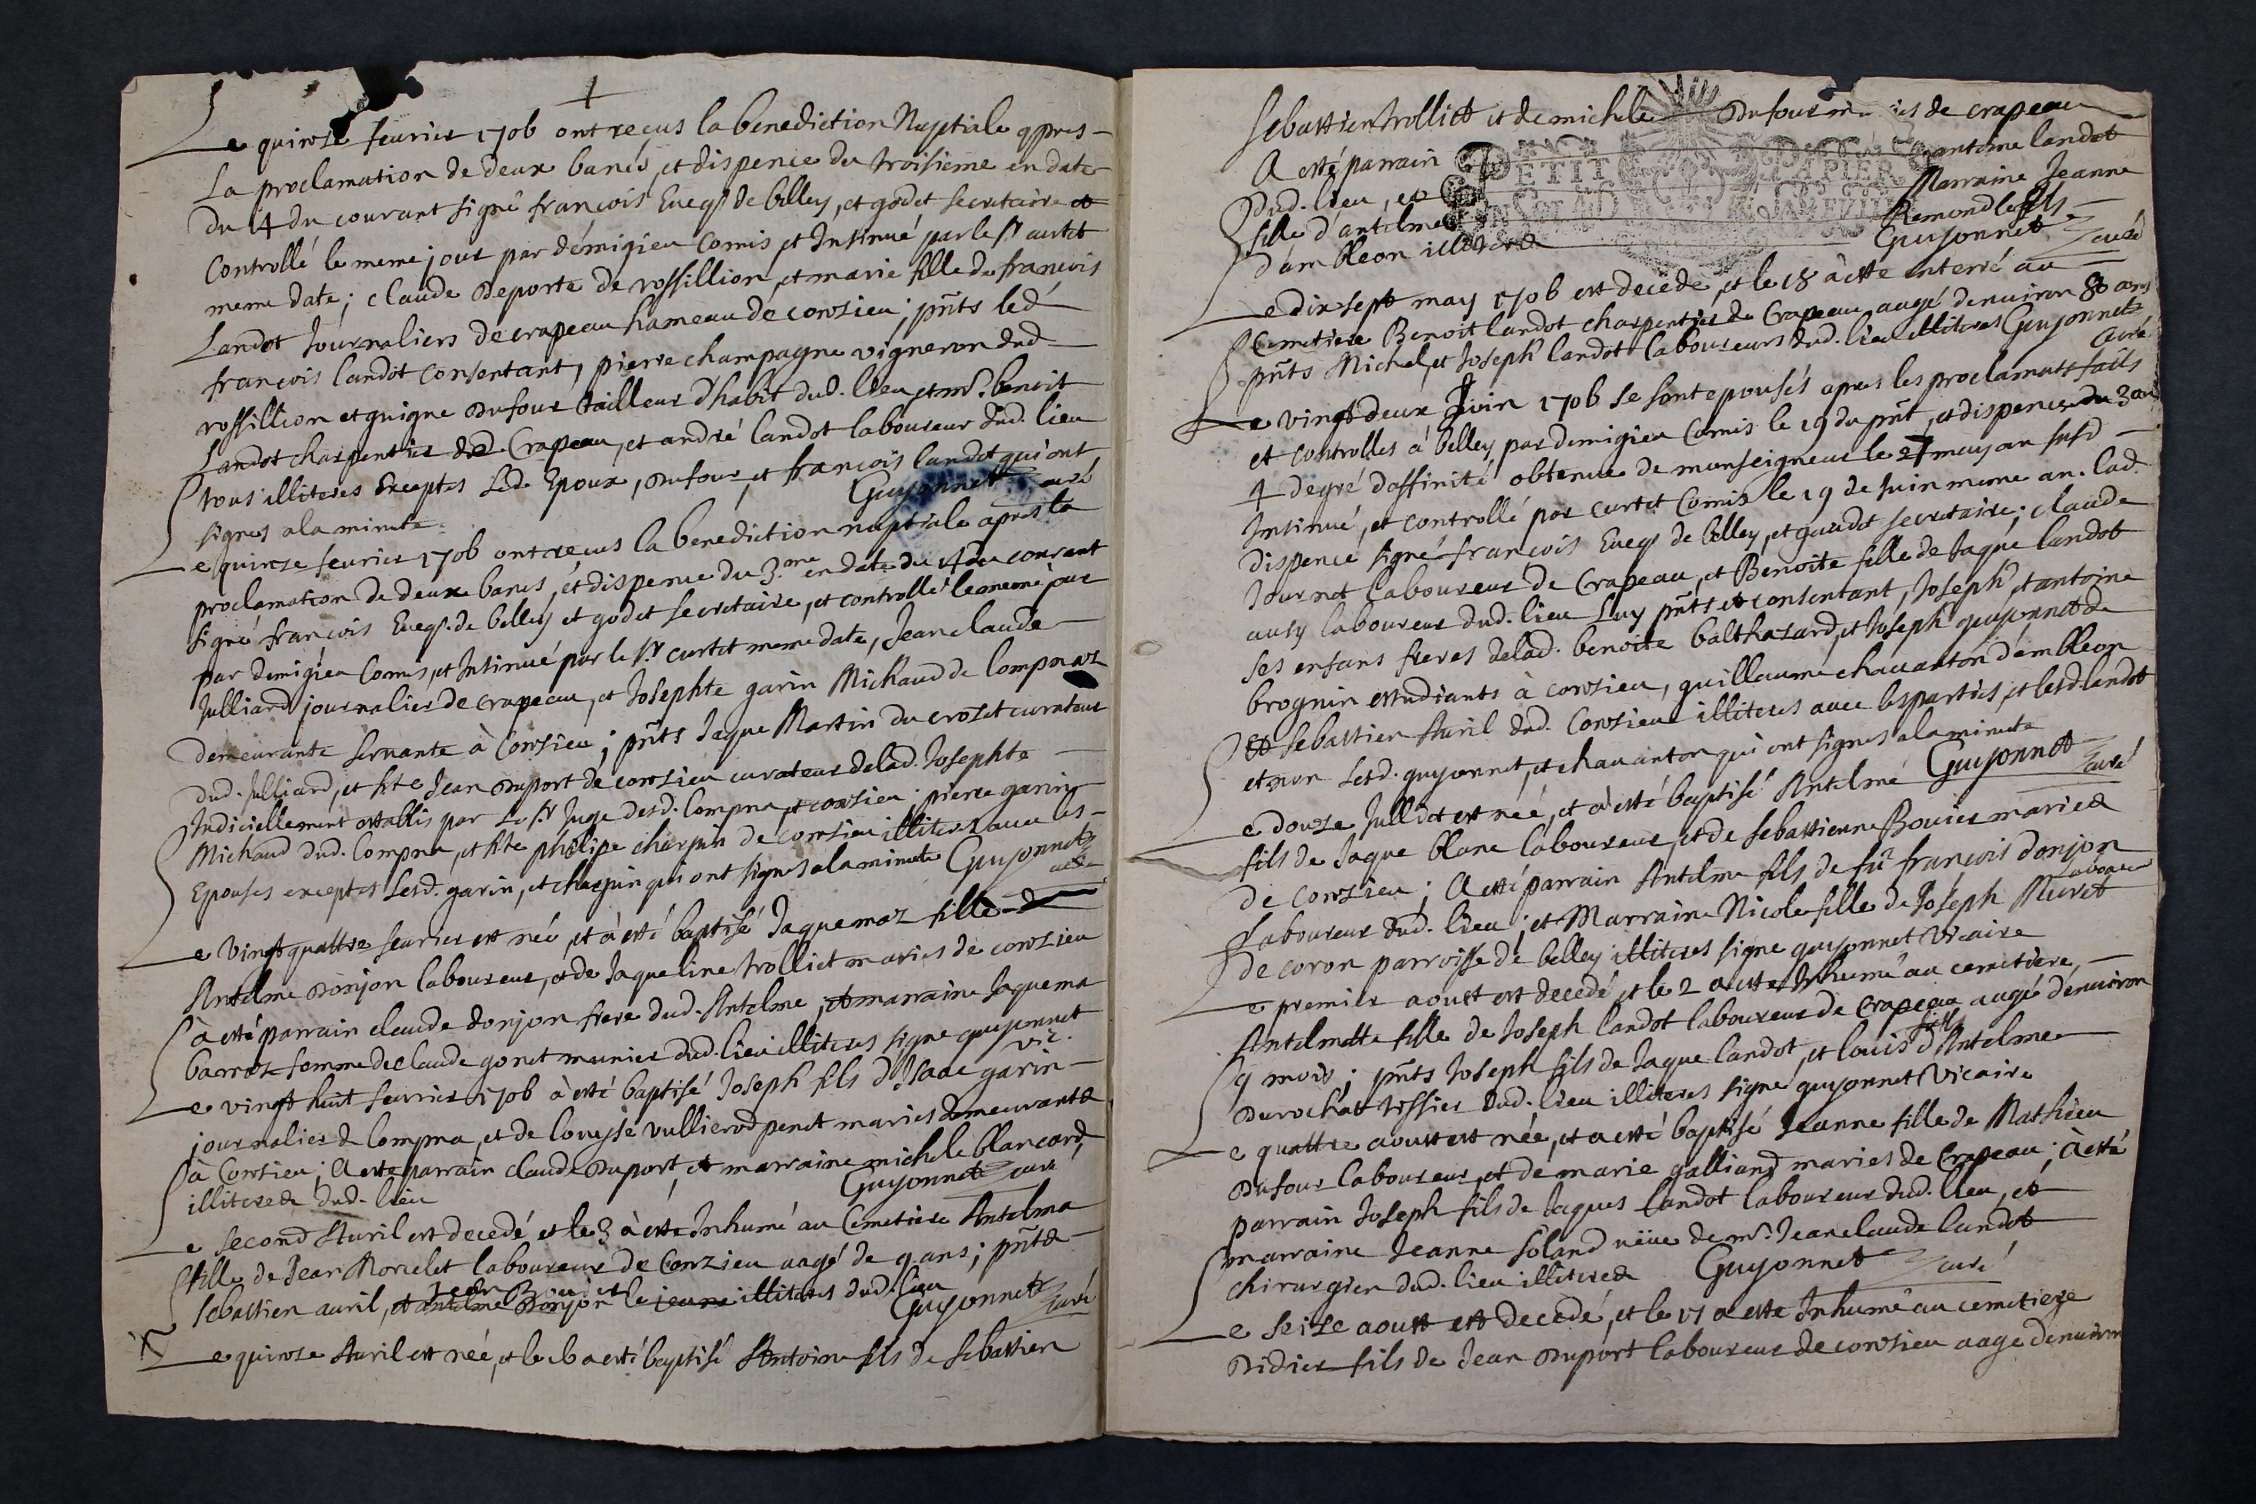 Le quinze feurier 1706 ont reçus la benediction Nuptiale apres
La proclamation de deux bancs, et dispence du troisieme en date
Du 14 du courant signé françois Eueq. de belley, et godet secretaire et
Controllé le meme jour par démigieu Comis, et Insinué par le Sr curtet
meme date; claude Deporte de rossillion, et marie fille de françois
Landot Journaliers de crapeau hameau de conzieu; pnts led.
françois landot Consentant, pierre champagne vigneron dud.
rossillion et guigne Dufour tailleur d'habit dud. lieu et mr. benoit
Landot charpentier dud. Crapeau, et andré landot laboureur dud. lieu
tous illiteres Exceptes Led. Epoux, Dufour, et françois landot qui ont
signes a la minute Guyonnet curé
Le quinze feurier 1706 ont reçus la benediction nuptiale apres la
proclamation de deux bancs, et dispence du 3.me en date du 14 du courant
signé françois Eueq. de belley et godet secretaire, et controllé le meme jour
par demigieu Comis, et Insinué par le Sr curtet meme date, Jean claude
Julliand journalier de crapeau, et Josephte garin Michaud de lompnaz
demeurante seruante à Conzieu; pnts Jaque Martin du crozet curateur
dud. Julliand, et hte Jean Duport de conzieu curateur de lad. Josephte
Judiciellement establis par Le Sr Juge desd. lompna, et conzieu. pierre garin
Michaud dud. lompna, et hte philipe charpin de conzieu illiteres auec les
Epouses exceptes lesd. garin, et charpin qui ont signes a la minute Guyonnet
curé
Le Vingt quattre feurier est née et à esté baptisé Jaquemaz fille d
Antelme Donjon laboureur, et de Jaqueline trolliet maries de conzieu
à esté parrain claude donjon frere dud. Antelme, et marraine Jaquema
barraz femme de claude gonet meunier dud. lieu illiteres signe guyonnet
vic.
Le vingt huit feurier 1706 à esté baptisé Joseph fils d'Isaac garin
journalier de lompna, et de louyse vullierod penet maries demeurants
à Conzieu; A esté parrain claude Duport, et marraine michele blancard
illiteres dud. lieu Guyonnet curé
Le second Auril est decedé et le 3 à esté Inhumé au Cemetiere Antelma
fille de Jean Morcelet laboureur de Conzieu aagé de 9 ans; pnts
Jean Bouiet
Sebastien auril, et antelme Donjon le jeune illiteres dud. lieu
Guyonnet curé
Le quinze Auril est née, et le 16 a esté baptisé Antoine fils de Sebastien
Sebastien trolliet et de michele Dufour de crapeau
A esté parrain antoine landot
Dud. lieu, et Marraine Jeanne
fille d'antelme Remond
d'ambleon illiteres Guyonnet curé
PETIT PAPIER
Le dix sept may 1706 est decedé, et le 18 à esté enterré au
Cemetiere Benoit landot charpentier de Crapeau aagé denuiron 80 ans
pnts Michel, et Joseph landot Laboureurs dud. lieu illiteres Guyonnet
curé
Le vingt deux Juin 1706 se sont epousés apres les proclamats faits
et controlles à belley par demigieu Comis le 19 du pnt, et dispence du 3 au
4 degré d'affinité obtenue de monseigneur le 27 may an susd
Insinué, et controllé par curtet Comis le 19 de Juin meme an. lad.
dispence signé françois Eueq de belley, et gaudet secretaire; claude
Journet laboureur de Crapeau, et Benoite fille de Jaque landot
ausy laboureur dud. lieu Luy pnts et consentant, Joseph, et antoine
ses enfans freres de lad. benoite balthazard, et Joseph guyonnet de
brognin estudiants à conzieu, guillaume chauanton d'embleon
Et Sebastien Auril dud. Conzieu illiteres auec les parties, et lesd landot
et non lesd. guyonnet, et chauanton qui ont signes a la minute
Guyonnet curé
Le douze Jullet est née, et à esté baptisé Antelme
fils de Jaque blanc laboureur, et de Sebastienne Bouier maries
de Conzieu; A esté parrain Antelme fils de fu françois donjon
laboureur
Laboureur dud. lieu; et Marraine Nicole fille de Joseph Muret
de coron parroisse de belley illiteres signe guyonnet Vicaire
Le premier aoust est decedé, et le 2 a esté Inhumé au cemetiere,
Antelmette fille de Joseph landot laboureur de Crapeau aagé denuiron
fils
9 mois; pnts Joseph fils de Jaque landot, et louis d'Antelme
Durochat tissier dud. lieu illiteres signé guyonnet Vicaire
Le quattre aoust est née, et a esté baptisé Jeanne fille de Mathieu
Dufour laboureur, et de marie galliand maries de Crapeau; à esté
parrain Joseph fils de Jaques landot laboureur dud. lieu, et
marraine Jeanne soland niéue de mr. Jean claude landot
chirurgien dud. lieu illiteres Guyonnet curé
Le seize aoust est decedé, et le 17 a esté Inhumé au cemetiere
Didier fils de Jean Duport laboureur de conzieu aagé denuiron